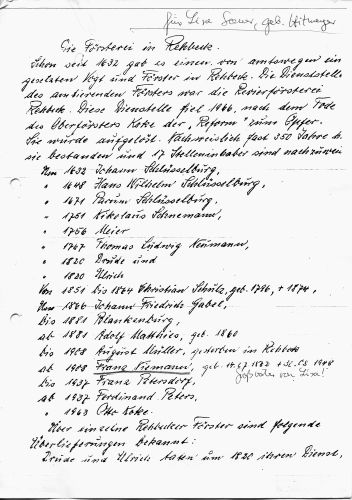 für Lisa Sosner, geb.
Die Försterei in Rehbeck.
Schon seit 1632 gab es einen von amtswegen ein
gesetzten Vogt und Förster in Rehbeck. Die Dienststelle
des amtierenden Försters war die Revierförsterei
Rehbeck. Diese Dienststelle fiel 1966, nach dem Tode
des Oberförsters Koke der „Reform" zum Opfer.
Sie wurde aufgelöst. Nachweislich fast 350 Jahre h.
sie bestanden und 17 Stelleninhaber sind nachzuwei
Um 1632 Johann Schlüsselburg,
" 1648 Hans Wilhelm Schlüsselburg,
" 1671 Schlüsselburg,
" 1751 Nikolaus Schnemann,
" 1756 Meier
" 1767 Thomas Ludwig Neumann,
" 1820 Drüde und
" 1820 Ulrich
Von 1851 bis 1864 Christian Schulz, geb. 1796, + 1874,
Um 1866 Johann Friedrich Gabel,
bis 1881 Blankenburg,
ab 1881 Adolf Matthies, geb. 1860
bis 1908 August Müller, gestorben in Rehbeck
ab 1908 Franz Siemann, geb. 1948
Großvater von Lisa!
bis 1937 Franz Petersdorf,
ab 1937 Ferdinand Peters,
" 1963 Otto Koke.
Über einzelne Rehbecker Förster sind folgende
Überlieferungen bekannt:
Drüde und Ulrich taten um 1820 ihren Dienst,